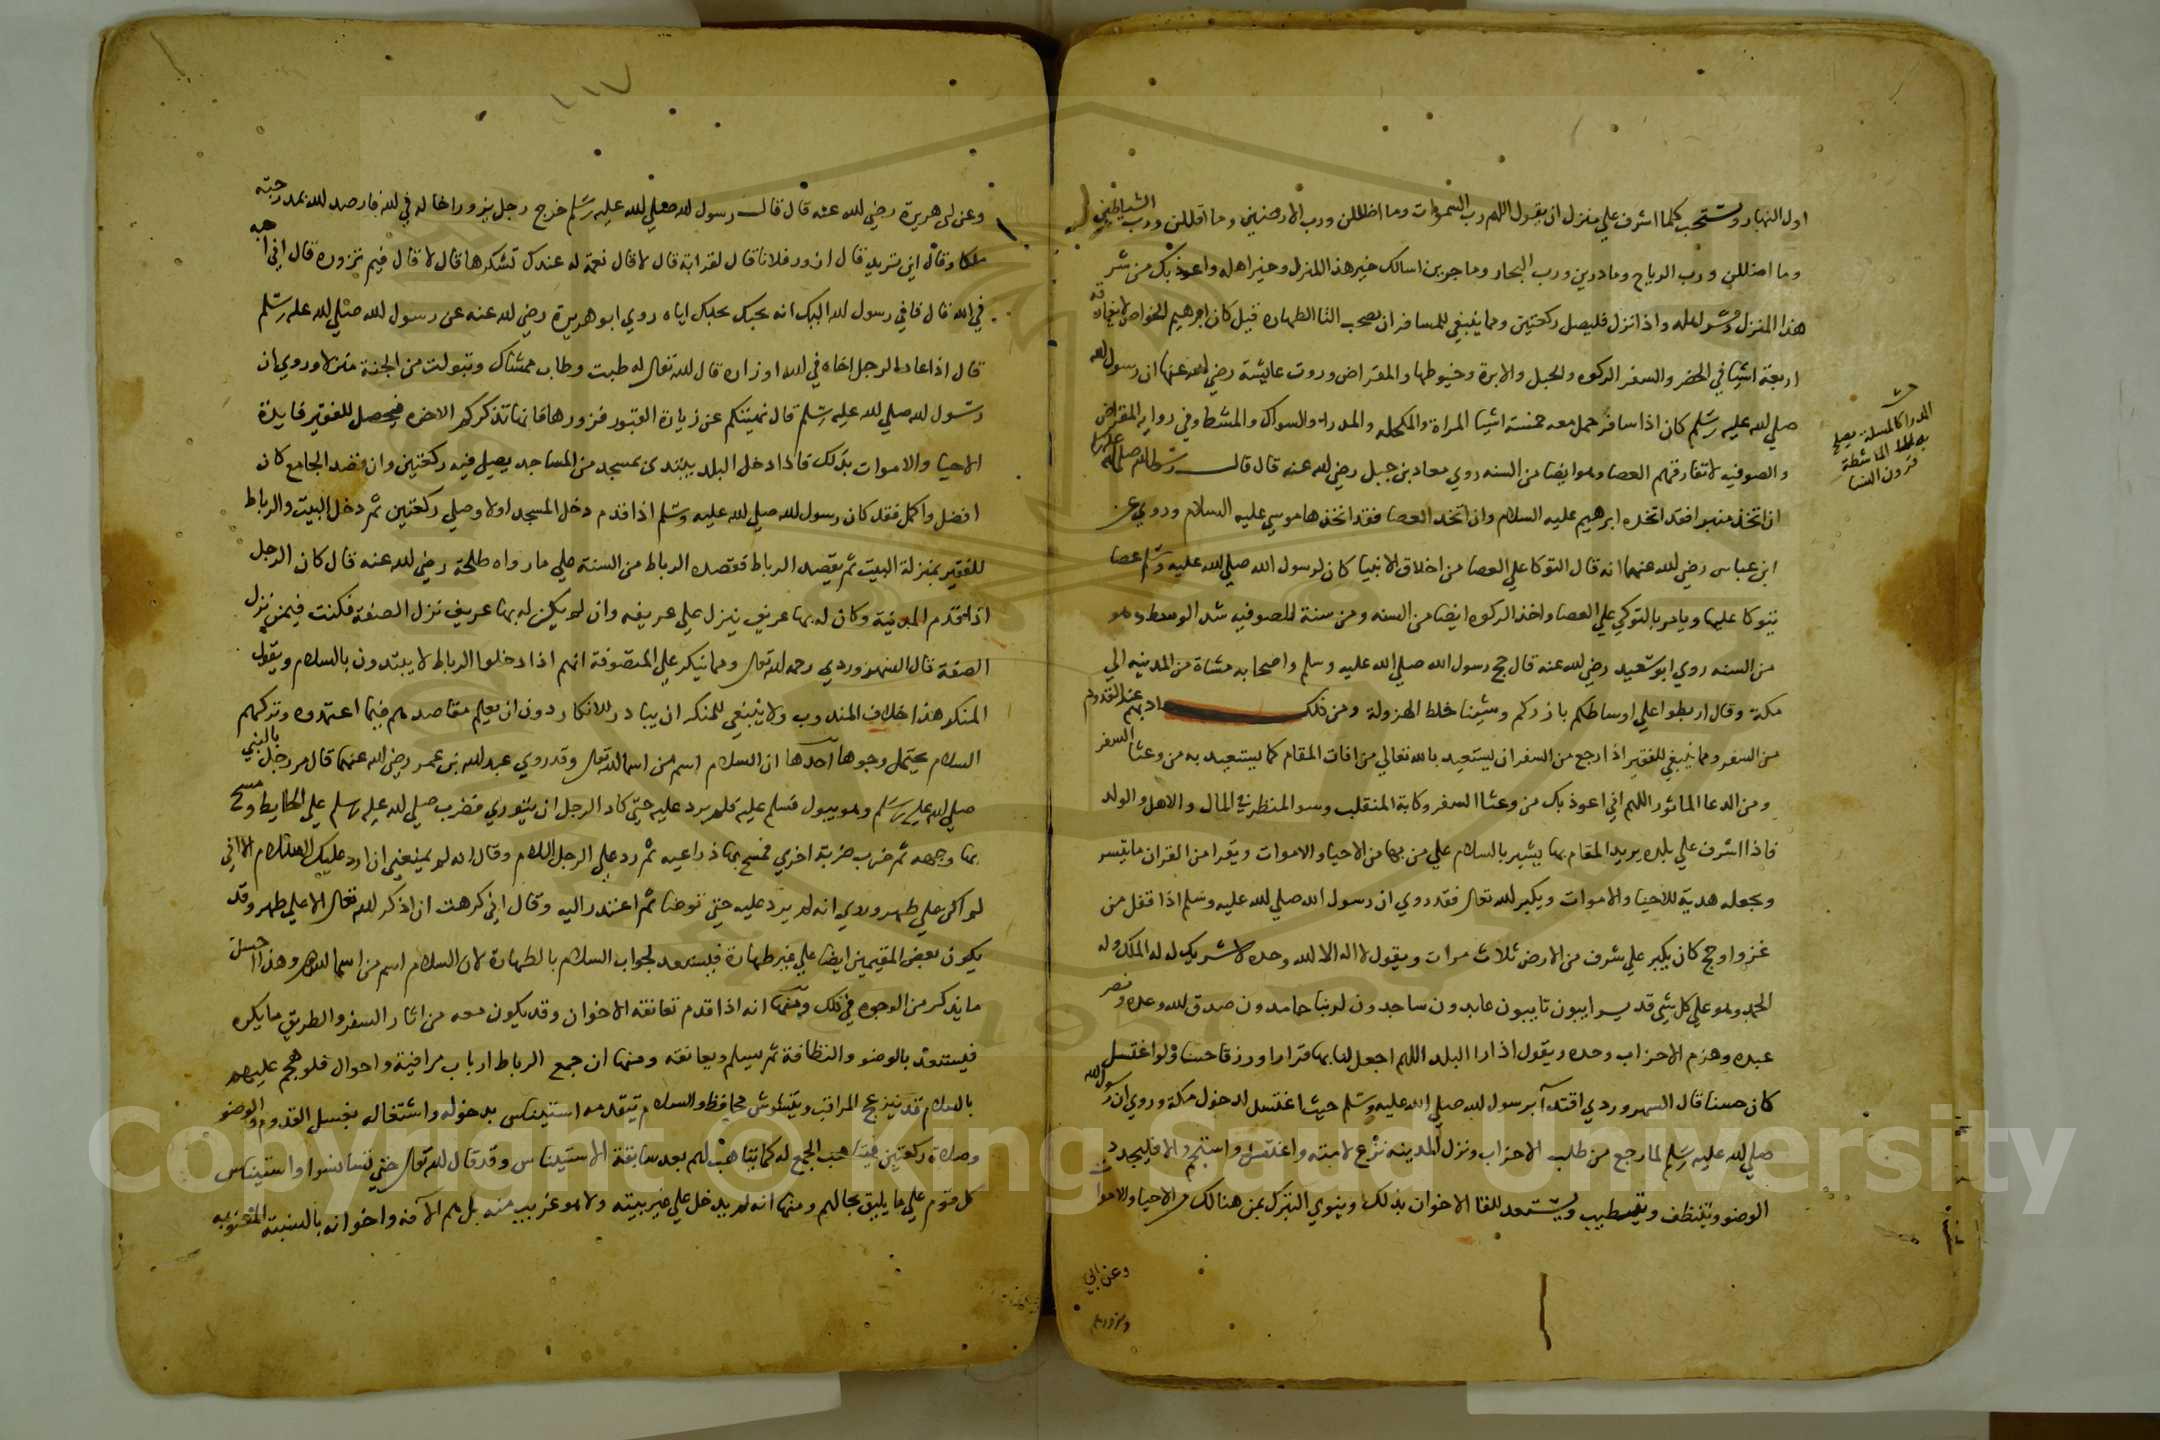 اول النهار ويستحب كلما اشرف علي منزل ان يقول اللهم رب السموات وما اظللن ورب الارضين وما اقللن ورب الشياطين
وما اضللن ورب الرياح وما ذرين ورب البحار وما جرين اسالك خير هذا المنزل وخير اهله واعوذ بك من شر
هذا المنزل وشر اهله واذا نزل فليصل ركعتين ومما ينبغي للمسافر ان يصحب الة الطهارة قيل كان ابرهيم الخواص لا يفارقه
اربعة اشيا في الحضر والسفر الركوه والحبل والابرة وخيوطها والمقراض وروت عايشة رضي الله عنها ان رسول الله
صلي الله عليه وسلم كان اذا سافر حمل معه خمسة اشيا المراة والمكحله والمدرا والسواك والمشط وفي روايه المقراض
والصوفيه لا تفارقهم العصا وهو ايضا من السنه روي معاذ بن جبل رضي الله عنه قال قال رسول الله صلى الله عليه وسلم
ان اتخذ منبرا فقد اتخذه ابرهيم عليه السلام وان اتخذ العصا فقد اتخذها موسي عليه السلام وروي عن
ابن عباس رضي الله عنهما انه قال التوكا علي العصا من اخلاق الانبيا كان لرسول الله صلي الله عليه وسلم عصا
يتوكا عليها ويامر بالتوكي علي العصا واخذ الركوه ايضا من السنه ومن سنة الصوفيه شد الوسط وهو
من السنه روي ابو سعيد رضي الله عنه قال حج رسول الله صلي الله عليه وسلم واصحابه مشاة من المدينه الي
مكة وقال اربطوا علي اوساطكم بازركم ومشينا خلط الهرولة ومن ذلك ادبهم عند القدوم
من السفر ومما ينبغي للفقير اذا رجع من السفر ان يستعيذ بالله تعالي من افات المقام كما يستعيذ به من وعثا السفر
ومن الدعا الماثور اللهم اني اعوذ بك من وعثا السفر وكابة المنقلب وسو المنظر في المال والاهل والولد
فاذا اشرف علي بلده يريد المقام بها يشير بالسلام علي من بها من الاحيا والاموات ويقرا من القران ما تيسر
ويجعله هدية للاحيا والاموات ويكبر الله تعالى فقد روي ان رسول الله صلي الله عليه وسلم اذا قفل من
غزو او حج كان يكبر علي شرف من الارض ثلاث مرات ويقول لا اله الا الله وحده لا شريك له له الملك وله
الحمد وهو علي كل شي قدير ايبون تايبون عابدون ساجدون لربنا حامدون صدق الله وعده ونصر
عبده وهزم الاحزاب وحده ويقول اذا را البلد اللهم اجعل لنا بها قرارا ورزقا حسنا ولو اغتسل
كان حسنا قال السهروردي اقتدا برسول الله صلي الله عليه وسلم حيث اغتسل لدخول مكة وروي ان رسول الله
صلي الله عليه وسلم لما رجع من طلب الاحزاب ونزل المدينه نزع لامته واغتسل واستجمر والا فليجدد
الوضو ويتنظف ويتطيب ويستعد للقا الاخوان بذلك وينوي التبرك بمن هنالك من الاحيا والاموات
وعن ابي
المدرا كالمسلة يصلح
به الماشطة
قرون النسا
١١٧
وعن ابي هريرة رضي الله عنه قال قال رسول الله صلي الله عليه وسلم خرج رجل يزور اخا له في الله فارصد الله بمدرجته
ملكا وقال اين تريد قال ازور فلانا قال لقرابة قال لا قال نعمة له عندك تشكرها قال لا قال فيم تزوره قال اني احبه
في الله قال فاني رسول الله اليك انه يحبك بحبك اياه روي ابو هريرة رضي الله عنه عن رسول الله صلي الله عليه وسلم
قال اذا عاد الرجل اخاه في الله او زاره قال الله تعالى له طبت وطاب ممشاك وتبوات من الجنة منزلا وروي ان
رسول الله صلي الله عليه وسلم قال نهيتكم عن زيارة القبور فزورها فانها تذكركم الاخره فيحصل للفقير فايدة
الاحيا والاموات بذلك فاذا دخل البلد يبتدي بمسجد من المساجد يصلي فيه ركعتين وان قصد الجامع كان
افضل واكمل فقد كان رسول الله صلي الله عليه وسلم اذا قدم دخل المسجد اولا وصلي ركعتين ثم دخل البيت والرباط
للفقير بمنزلة البيت ثم يقصد الرباط فقصده الرباط من السنة علي ما رواه طلحة رضي الله عنه قال كان الرجل
اذا قدم المدينة وكان له بها عريف ينزل علي عريفه وان لم يكن له بها عريف نزل الصفة فكنت فيمن نزل
الصفة قال السهروردي رحمه الله تعالى ومما ينكر علي المتصوفة انهم اذا دخلوا الرباط لا يبتدون بالسلام ويقول
المنكر هذا خلاف المندوب ولا ينبغي للمنكر ان يبادر للانكار دون ان يعلم مقاصدهم فيما اعتمدوه وتركهم
السلام يحتمل وجوها احدها ان السلام اسم من اسما الله تعالى وقد روي عبد الله بن عمر رضي الله عنهما قال مر رجل بالنبي
صلي الله عليه وسلم وهو يبول فسلم عليه فلم يرد عليه حتى كاد الرجل ان يتوري فضرب صلي الله عليه وسلم علي الحايط ومسح
بها وجهه ثم ضرب ضربة اخري فمسح بها ذراعيه ثم رد علي الرجل السلام وقال انه لم يمنعني ان ارد عليك السلام الا اني
لم اكن علي طهر وروي انه لم يرد عليه حتى توضا ثم اعتذر اليه وقال اني كرهت ان اذكر الله تعالى الا علي طهر وقد
يكون بعض المقيمين ايضا علي غير طهارة فيستعد لجواب السلام بالطهارة لان السلام اسم من اسما الله وهذا احسن
ما يذكر من الوجوه في ذلك ومنها انه اذا قدم تعانقه الاخوان وقد يكون معه من اثار السفر والطريق ما يكره
فيستعد بالوضو والنظافة ثم يسلم ويعانقه ومنها ان جمع الرباط ارباب مراقبة واحوال فلو هجم عليهم
بالسلام قد ينزعج المراقب ويتشوش محافظ والسلام يتقدمه استيناس بدخوله واشتغاله بغسل القدم والوضو
وصلاة ركعتين فيتاهب الجمع له كما يتاهب لهم بعد سابقة الاستيناس وقد قال الله تعالى حتي تستانسوا واستيناس
كل قوم علي ما يليق بحالهم ومنها انه لم يدخل علي غير بيته ولا هو غريب منه بل هم الافه واخوانه بالنسبة المعنويه